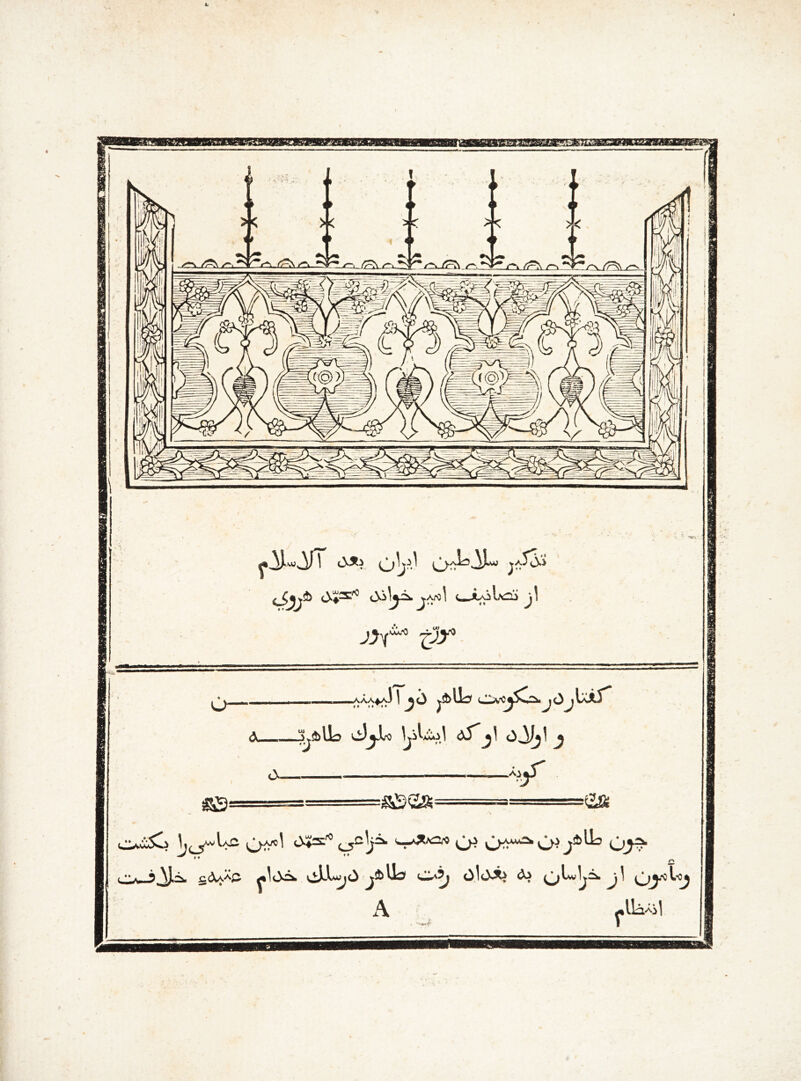 تذکیر سلاطین ایران بعد آلاسلام
از تصانیف امیر خواند محمد هروی
مورخ مشهور
کفتار در حکومت طاهر ذوآلیمینین
و اولاد او که ایشانرا ملوك طاهریّه
کویند
چون طاهر بن حسین بن مصعب خزاعی محمد امین عباسی را بکشت
ومامون از خراسان به بغداد رفت طاهر درسلك خدام عتبهء خلافت
A انتظام